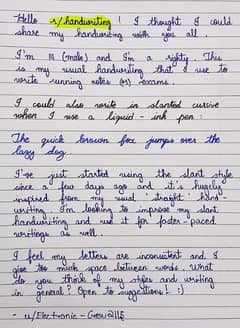 Hello r/handwriting ! I thought I could
share my handwriting with you all.
I'm (male) and I'm a righty. This
is my usual handwriting that I use to
write running notes (or) exams.
I could also write in slanted cursive
when I use a liquid-ink pen:
The quick brown fox jumps over the
lazy dog.
I've just started using the slant style
since a few days ago and it's hugely
inspired from my usual 'straight' hand-
writing. I'm looking to improve my slant
handwriting and use it for faster-paced
writings as well.
I feel my letters are inconsistent and I
give too much space between words. What
do you think of my styles and writing
in general? Open to suggestions! :)